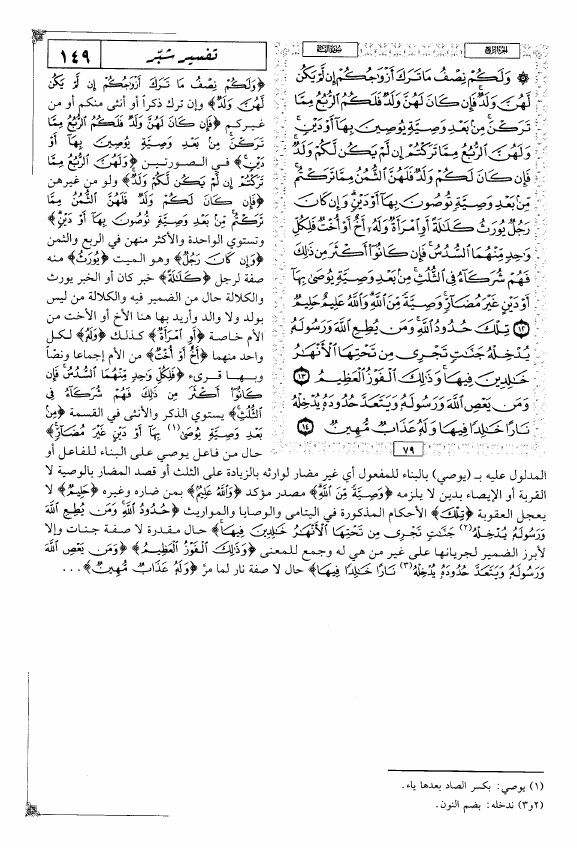 تفسير شبّر
١٤٩
الجزء الرابع
سورة النساء
۞ وَلَكُمْ نِصْفُ مَا تَرَكَ أَزْوَاجُكُمْ إِن لَّمْ يَكُن
لَّهُنَّ وَلَدٌ فَإِن كَانَ لَهُنَّ وَلَدٌ فَلَكُمُ الرُّبُعُ مِمَّا
تَرَكْنَ مِنْ بَعْدِ وَصِيَّةٍ يُوصِينَ بِهَا أَوْ دَيْنٍ
وَلَهُنَّ الرُّبُعُ مِمَّا تَرَكْتُمْ إِن لَّمْ يَكُن لَّكُمْ وَلَدٌ
فَإِن كَانَ لَكُمْ وَلَدٌ فَلَهُنَّ الثُّمُنُ مِمَّا تَرَكْتُم
مِنْ بَعْدِ وَصِيَّةٍ تُوصُونَ بِهَا أَوْ دَيْنٍ وَإِن كَانَ
رَجُلٌ يُورَثُ كَلَالَةً أَوِ امْرَأَةٌ وَلَهُ أَخٌ أَوْ أُخْتٌ فَلِكُلِّ
وَاحِدٍ مِنْهُمَا السُّدُسُ فَإِن كَانُوا أَكْثَرَ مِن ذَلِكَ
فَهُمْ شُرَكَاءُ فِي الثُّلُثِ مِنْ بَعْدِ وَصِيَّةٍ يُوصَى بِهَا
أَوْ دَيْنٍ غَيْرَ مُضَارٍّ وَصِيَّةً مِنَ اللَّهِ وَاللَّهُ عَلِيمٌ حَلِيمٌ
﴿١٢﴾ تِلْكَ حُدُودُ اللَّهِ وَمَن يُطِعِ اللَّهَ وَرَسُولَهُ
يُدْخِلْهُ جَنَّاتٍ تَجْرِي مِن تَحْتِهَا الْأَنْهَارُ
خَالِدِينَ فِيهَا وَذَلِكَ الْفَوْزُ الْعَظِيمُ ﴿١٣﴾
وَمَن يَعْصِ اللَّهَ وَرَسُولَهُ وَيَتَعَدَّ حُدُودَهُ يُدْخِلْهُ
نَارًا خَالِدًا فِيهَا وَلَهُ عَذَابٌ مُهِينٌ ﴿١٤﴾
٧٩
﴿وَلَكُمْ نِصْفُ مَا تَرَكَ أَزْوَاجُكُمْ إِن لَّمْ يَكُن
لَّهُنَّ وَلَدٌ﴾ وإن ترك ذكراً أو أنثى منكم أو من
غيركم ﴿فَإِن كَانَ لَهُنَّ وَلَدٌ فَلَكُمُ الرُّبُعُ مِمَّا
تَرَكْنَ مِنْ بَعْدِ وَصِيَّةٍ يُوصِينَ بِهَا أَوْ
دَيْنٍ﴾ في الصورتين ﴿وَلَهُنَّ الرُّبُعُ مِمَّا
تَرَكْتُمْ إِن لَّمْ يَكُن لَّكُمْ وَلَدٌ﴾ ولو من غيرهن
﴿فَإِن كَانَ لَكُمْ وَلَدٌ فَلَهُنَّ الثُّمُنُ مِمَّا
تَرَكْتُم مِنْ بَعْدِ وَصِيَّةٍ تُوصُونَ بِهَا أَوْ دَيْنٍ﴾
وتستوي الواحدة والأكثر منهن في الربع والثمن
﴿وَإِن كَانَ رَجُلٌ﴾ وهو الميت ﴿يُورَثُ﴾ منه
صفة لرجل ﴿كَلَالَةً﴾ خبر كان أو الخبر يورث
والكلالة حال من الضمير فيه والكلالة من ليس
بولد ولا والد وأريد بها هنا الأخ أو الأخت من
الأم خاصة ﴿أَوِ امْرَأَةٌ﴾ كذلك ﴿وَلَهُ﴾ لكل
واحد منهما ﴿أَخٌ أَوْ أُخْتٌ﴾ من الأم إجماعا ونصّاً
وبها قرىء ﴿فَلِكُلِّ وَاحِدٍ مِنْهُمَا السُّدُسُ فَإِن
كَانُوا أَكْثَرَ مِن ذَلِكَ فَهُمْ شُرَكَاءُ فِي
الثُّلُثِ﴾ يستوي الذكر والأنثى في القسمة ﴿مِنْ
بَعْدِ وَصِيَّةٍ يُوصَى(١) بِهَا أَوْ دَيْنٍ غَيْرَ مُضَارٍّ﴾
حال من فاعل يوصي على البناء للفاعل أو
المدلول عليه بـ (يوصي) بالبناء للمفعول أي غير مضار لوارثه بالزيادة على الثلث أو قصد المضار بالوصية لا
القربة أو الإيصاء بدين لا يلزمه ﴿وَصِيَّةً مِنَ اللَّهِ﴾ مصدر مؤكد ﴿وَاللَّهُ عَلِيمٌ﴾ بمن ضاره وغيره ﴿حَلِيمٌ﴾ لا
يعجل العقوبة ﴿تِلْكَ﴾ الأحكام المذكورة في اليتامى والوصايا والمواريث ﴿حُدُودُ اللَّهِ وَمَن يُطِعِ اللَّهَ
وَرَسُولَهُ يُدْخِلْهُ(٢) جَنَّاتٍ تَجْرِي مِن تَحْتِهَا الْأَنْهَارُ خَالِدِينَ فِيهَا﴾ حال مقدرة لا صفة جنات وإلا
لأبرز الضمير لجريانها على غير من هي له وجمع للمعنى ﴿وَذَلِكَ الْفَوْزُ الْعَظِيمُ﴾ ﴿وَمَن يَعْصِ اللَّهَ
وَرَسُولَهُ وَيَتَعَدَّ حُدُودَهُ يُدْخِلْهُ(٣) نَارًا خَالِدًا فِيهَا﴾ حال لا صفة نار لما مرَّ ﴿وَلَهُ عَذَابٌ مُهِينٌ﴾...
(١) يوصي: بكسر الصاد بعدها ياء.
(٢و٣) ندخله: بضم النون.